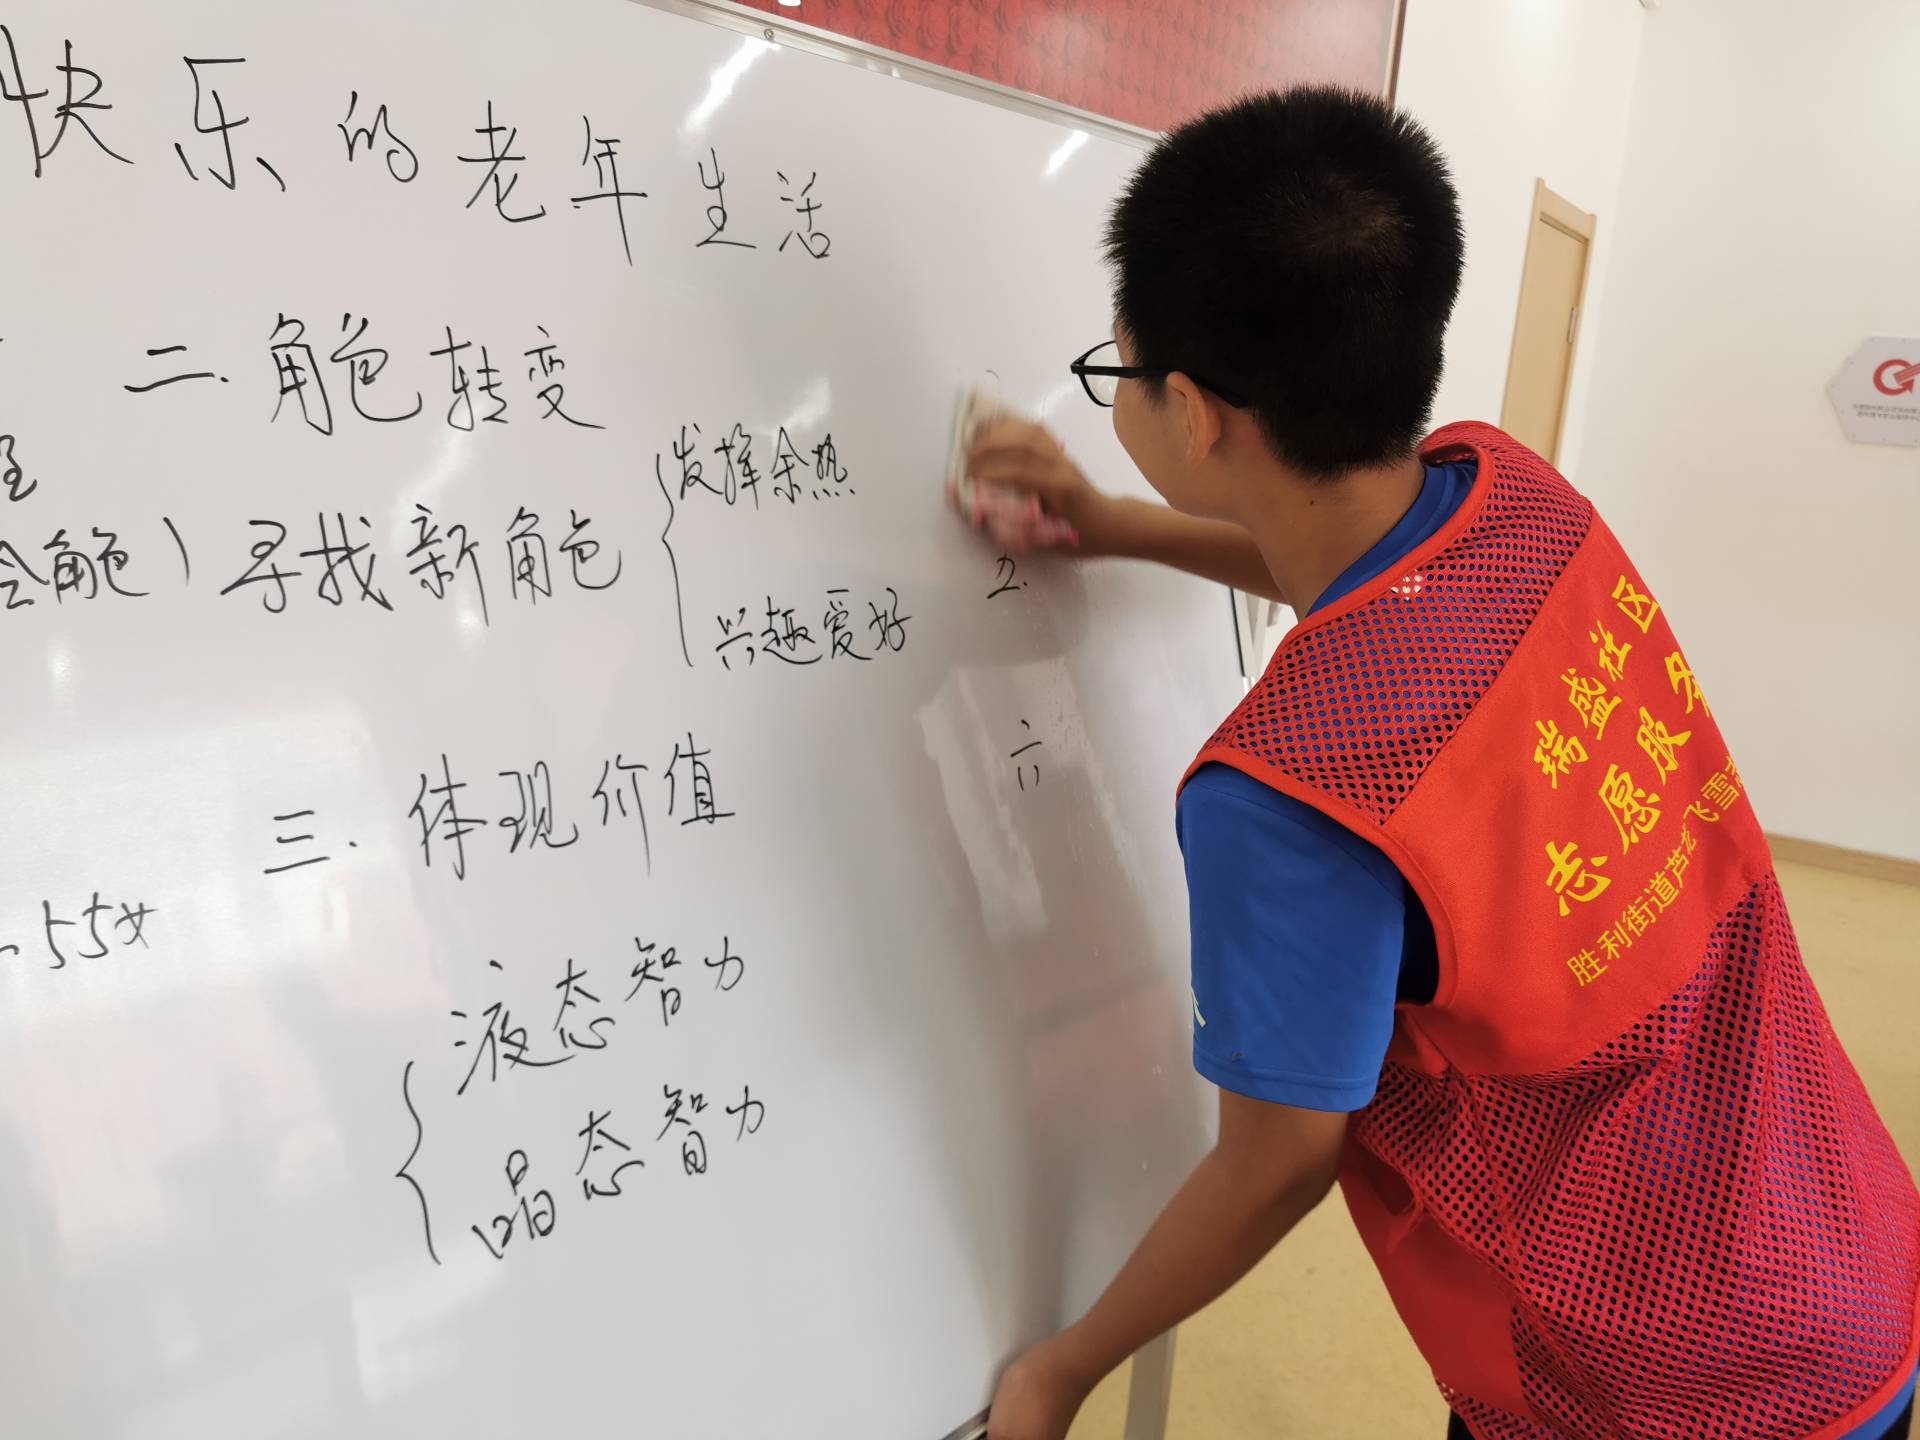 快乐的老年生活
二.角色转变
角色）寻找新角色
发挥余热
兴趣爱好
三.体现价值
55岁
液态智力
晶态智力
五.
六
瑞盛社区
志愿服务
胜利街道芦花飞雪志